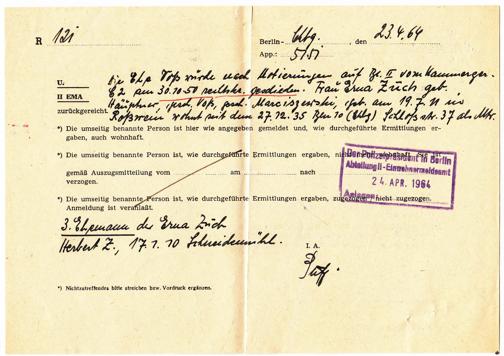 R 121
Berlin- Chbg., den 23.4.64
App.: 5151
U.
II EMA
zurückgereicht.
Die Ehe Voß wurde nach Notierungen auf Bl. II vom Kammerger.
E2 am 30.10.50 rechtskr. geschieden. Frau Erna Züch geb.
Häuptner, gesch. Voß, gesch. Marciszewski, geb. am 19.7.11 in
Roßwein wohnt mit dem 27.12.35 Bln 10 (Chbg) Schloßstr. 37 als Mtr.
*) Die umseitig benannte Person ist hier wie angegeben gemeldet und, wie durchgeführte Ermittlungen er-
gaben, auch wohnhaft.
*) Die umseitig benannte Person ist, wie durchgeführte Ermittlungen ergaben,
gemäß Auszugsmitteilung vom am nach
verzogen.
*) Die umseitig benannte Person ist, wie durchgeführte Ermittlungen ergaben, zugezogen, nicht zugezogen.
Anmeldung ist veranlaßt.
Der Polizeipräsident in Berlin
Abteilung II - Einwohnermeldeamt
24. APR. 1964
Anlagen
3. Ehemann der Erna Züch
Herbert Z., 17.1.10 Schneidemühl.
I. A.
*) Nichtzutreffendes bitte streichen bzw. Vordruck ergänzen.